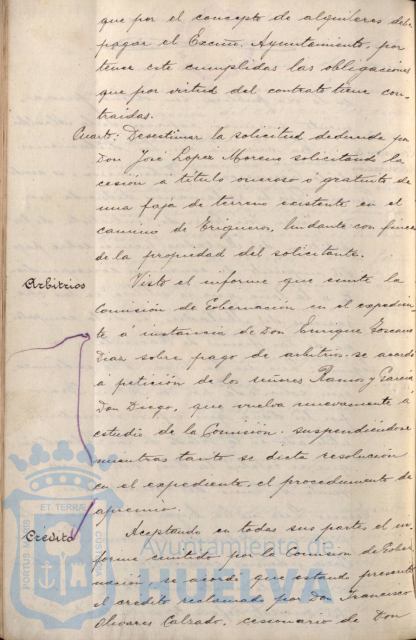 que por el concepto de alquileres debe
pagar el Excmo. Ayuntamiento, por
tener este cumplidas las obligaciones
que por virtud del contrato tiene con-
traidas.
Cuarto: Desestimar la solicitud deducida por
Don José Lopez Moreno solicitando la
cesión á titulo oneroso ó gratuito de
una faja de terreno existente en el
camino de Trigueros, lindante con fincas
de la propiedad del solicitante.
Arbitrios
Visto el informe que emite la
Comisión de Gobernación en el expedien-
te á instancia de Don Enrique Toscano
Diaz sobre pago de arbitrios se acordó
á petición de los señores Ramos y Garcia
Don Diego, que vuelva nuevamente á
estudio de la Comisión, suspendiéndose
mientras tanto se dicta resolución
en el expediente, el procedimiento de
apremio.
Crédito
Aceptando en todas sus partes, el in-
forme emitido por la Comisión de Gober-
nación, se acordo que estando presente
el crédito reclamado por Don Francisco
Olivares Calzado, cesionario de Don
ET TERRAE
PORTUS MARIS
CUSTODIA
Ayuntamiento de
HUELVA